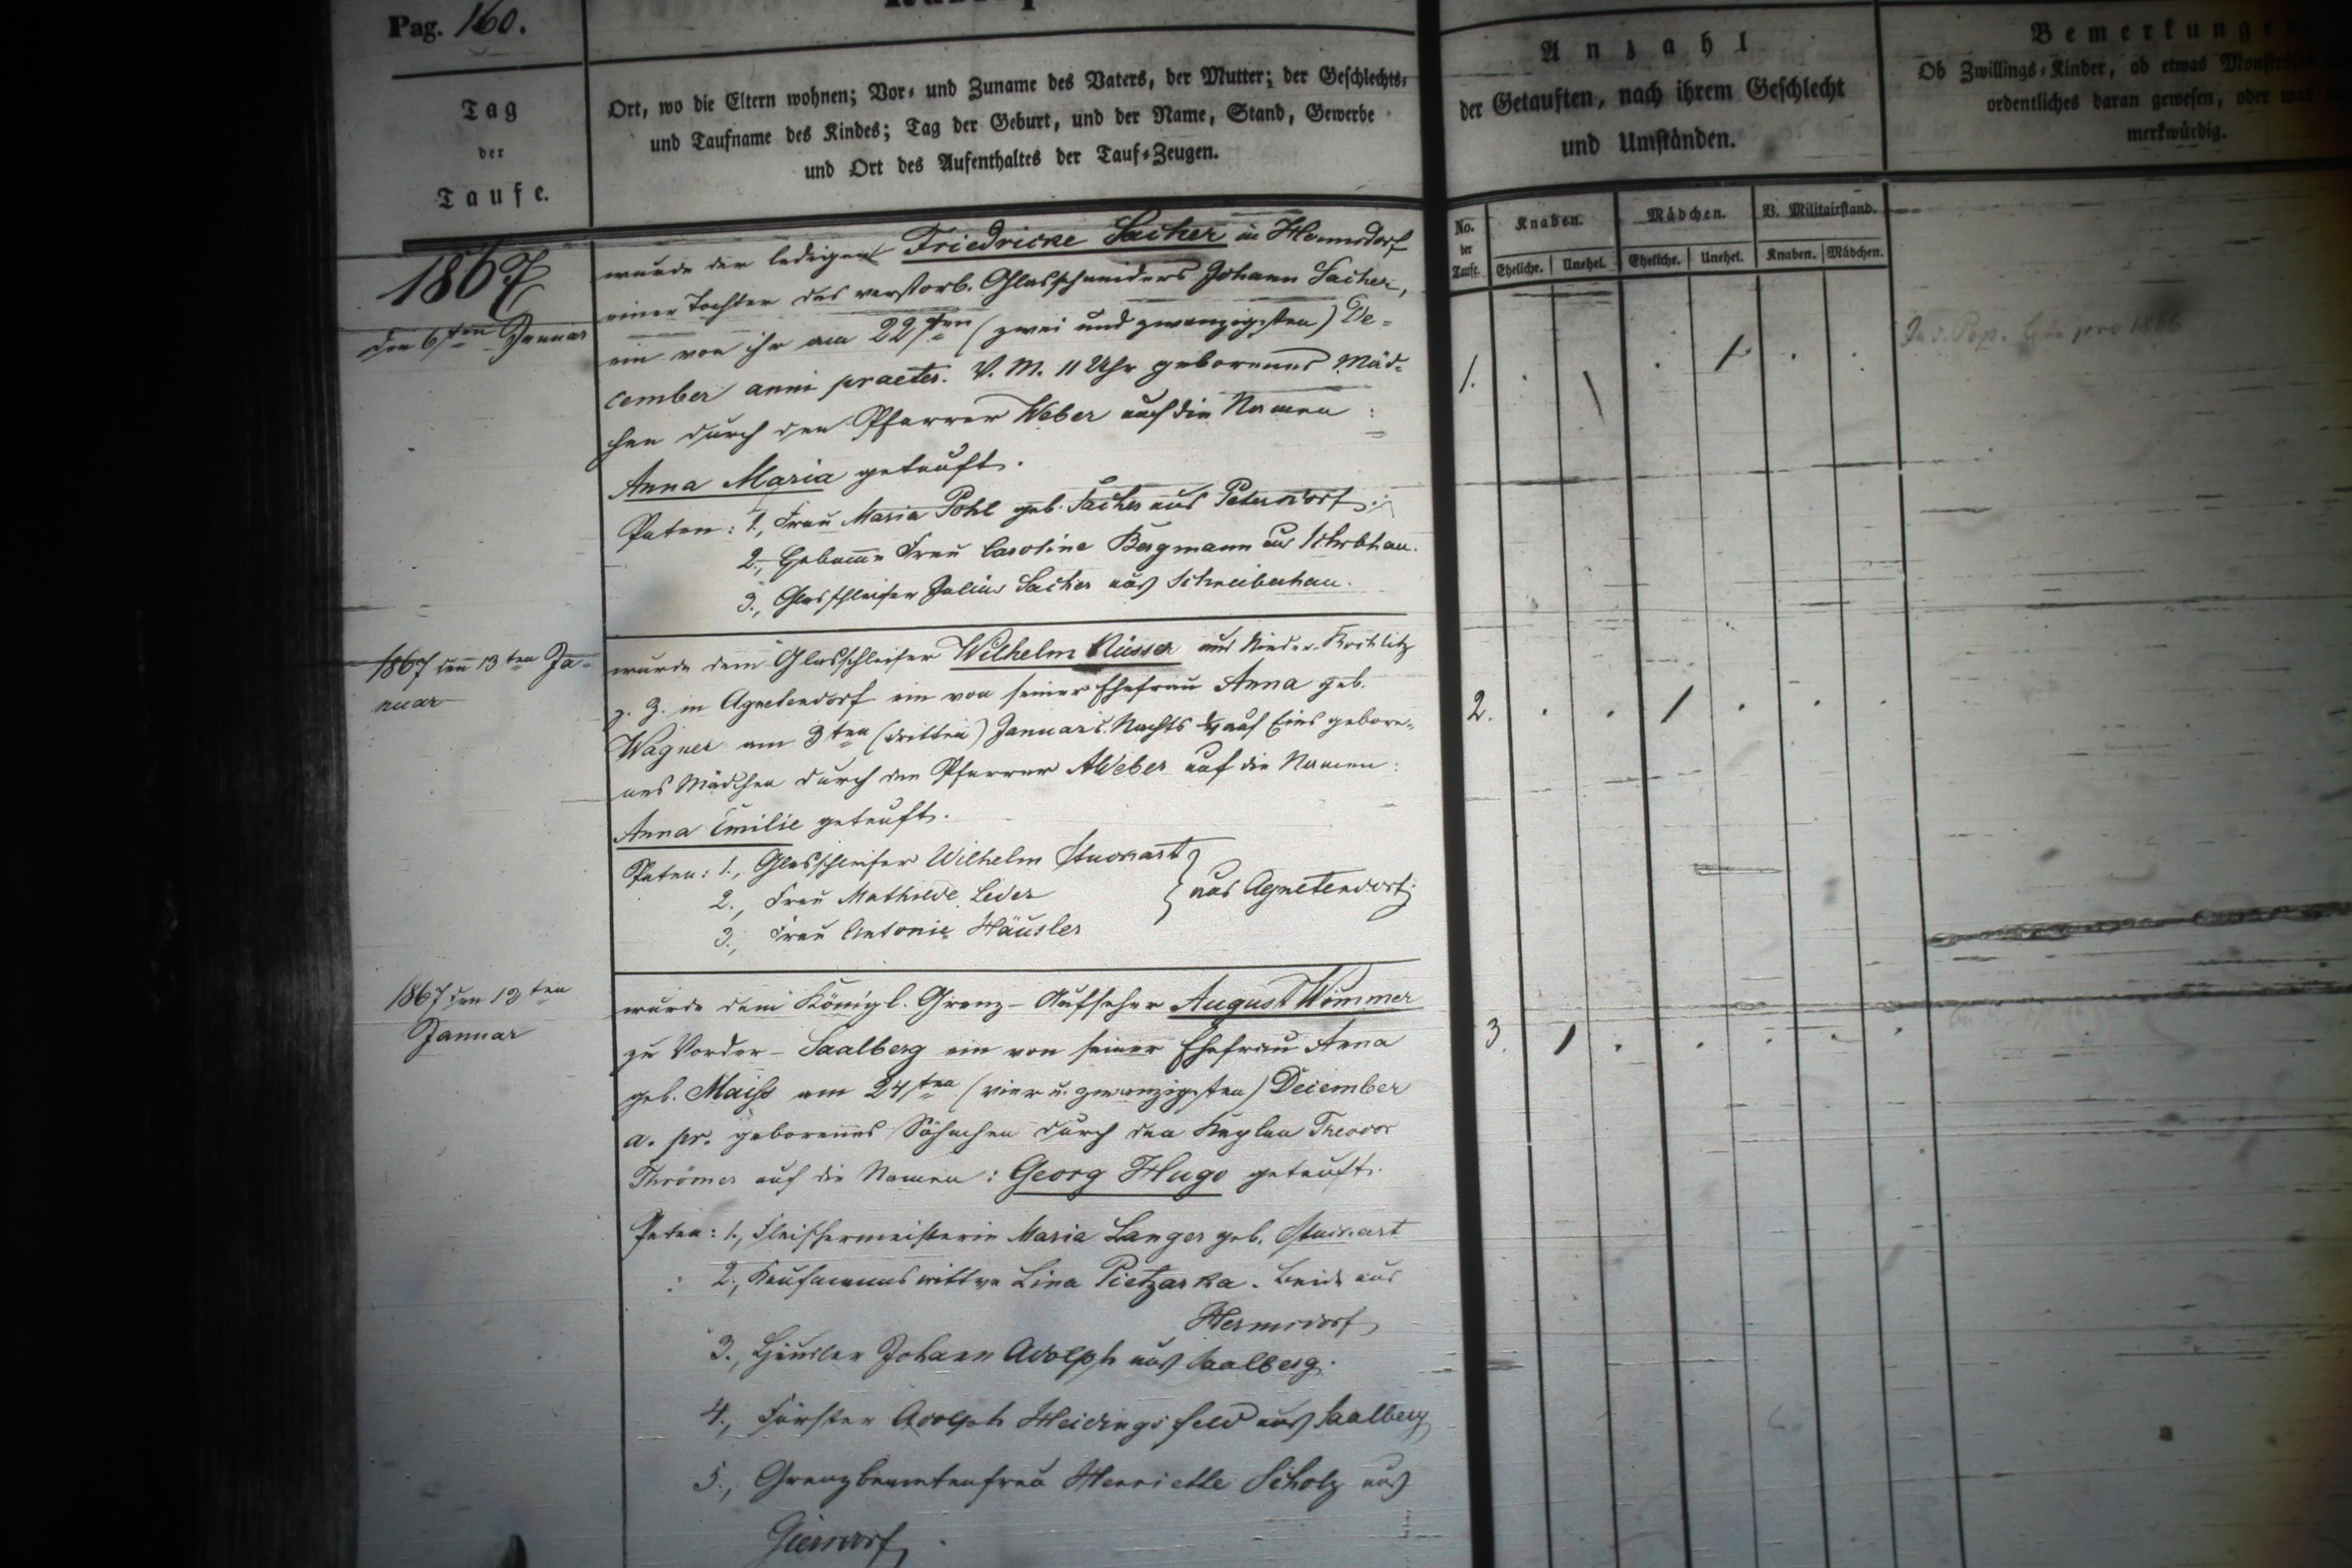 Pag. 160.
Tag
der
Taufe.
Ort, wo die Eltern wohnen; Vor- und Zuname des Vaters, der Mutter; der Geschlechts-
und Taufname des Kindes; Tag der Geburt, und der Name, Stand, Gewerbe
und Ort des Aufenthaltes der Tauf-Zeugen.
Anzahl
der Getauften, nach ihrem Geschlecht
und Umständen.
Bemerkungen
Ob Zwillings-Kinder, ob etwas
ordentliches daran gewesen, oder was
merkwürdig.
No.
der
Taufe.
Knaben.
Mädchen.
V. Militairstand.
Eheliche.
Unehel.
Eheliche.
Unehel.
Knaben.
Mädchen.
1867
den 6ten Januar
wurde der ledigen Friedricke Sacher in Hermsdorf
einer Tochter des verstorb. Glasschneiders Johann Sacher,
ein von ihr am 22ten (zwei und zwanzigsten) De-
cember anni praeter. V. M. 11 Uhr geborenes Mäd-
chen durch den Pfarrer Weber auf die Namen:
Anna Maria getauft.
Paten: 1., Frau Maria Pohl geb. Sacher aus Petersdorf.
2., Hebamme Frau Caroline Bergmann aus Schrbhau.
3., Glasschleifer Julius Sacher aus Schreiberhau.
1.
1867 den 13ten Ja-
nuar
wurde dem Glasschleifer Wilhelm Nüsser aus Nieder-Rochlitz
z. Z. in Agnetendorf ein von seiner Ehefrau Anna geb.
Wagner am 3ten (dritten) Januar Nachts auf Eins gebore-
nes Mädchen durch den Pfarrer Weber auf die Namen:
Anna Emilie getauft.
Paten: 1., Glasschleifer Wilhelm
2., Frau Mathilde Leder
3., Frau Antonie Häusler
aus Agnetendorf.
2.
1867 den 13ten
Januar
wurde dem Königl. Grenz-Aufseher August Wimmer
zu Vorder-Saalberg ein von seiner Ehefrau Anna
geb. Maiß am 24ten (vier u. zwanzigsten) December
a. pr. geborenes Söhnchen durch den Kaplan Theodor
Thrömer auf die Namen: Georg Hugo getauft.
Paten: 1., Fleischermeisterin Maria Langer geb.
2., Kaufmannswittwe Lina Pietzarka. beide aus
Hermsdorf
3., Häusler Johann Adolph aus Saalberg.
4., Förster Adolph Heidingsfeld aus Saalberg
5., Grenzbeamtenfrau Henriette Scholz aus
Giersdorf.
3.